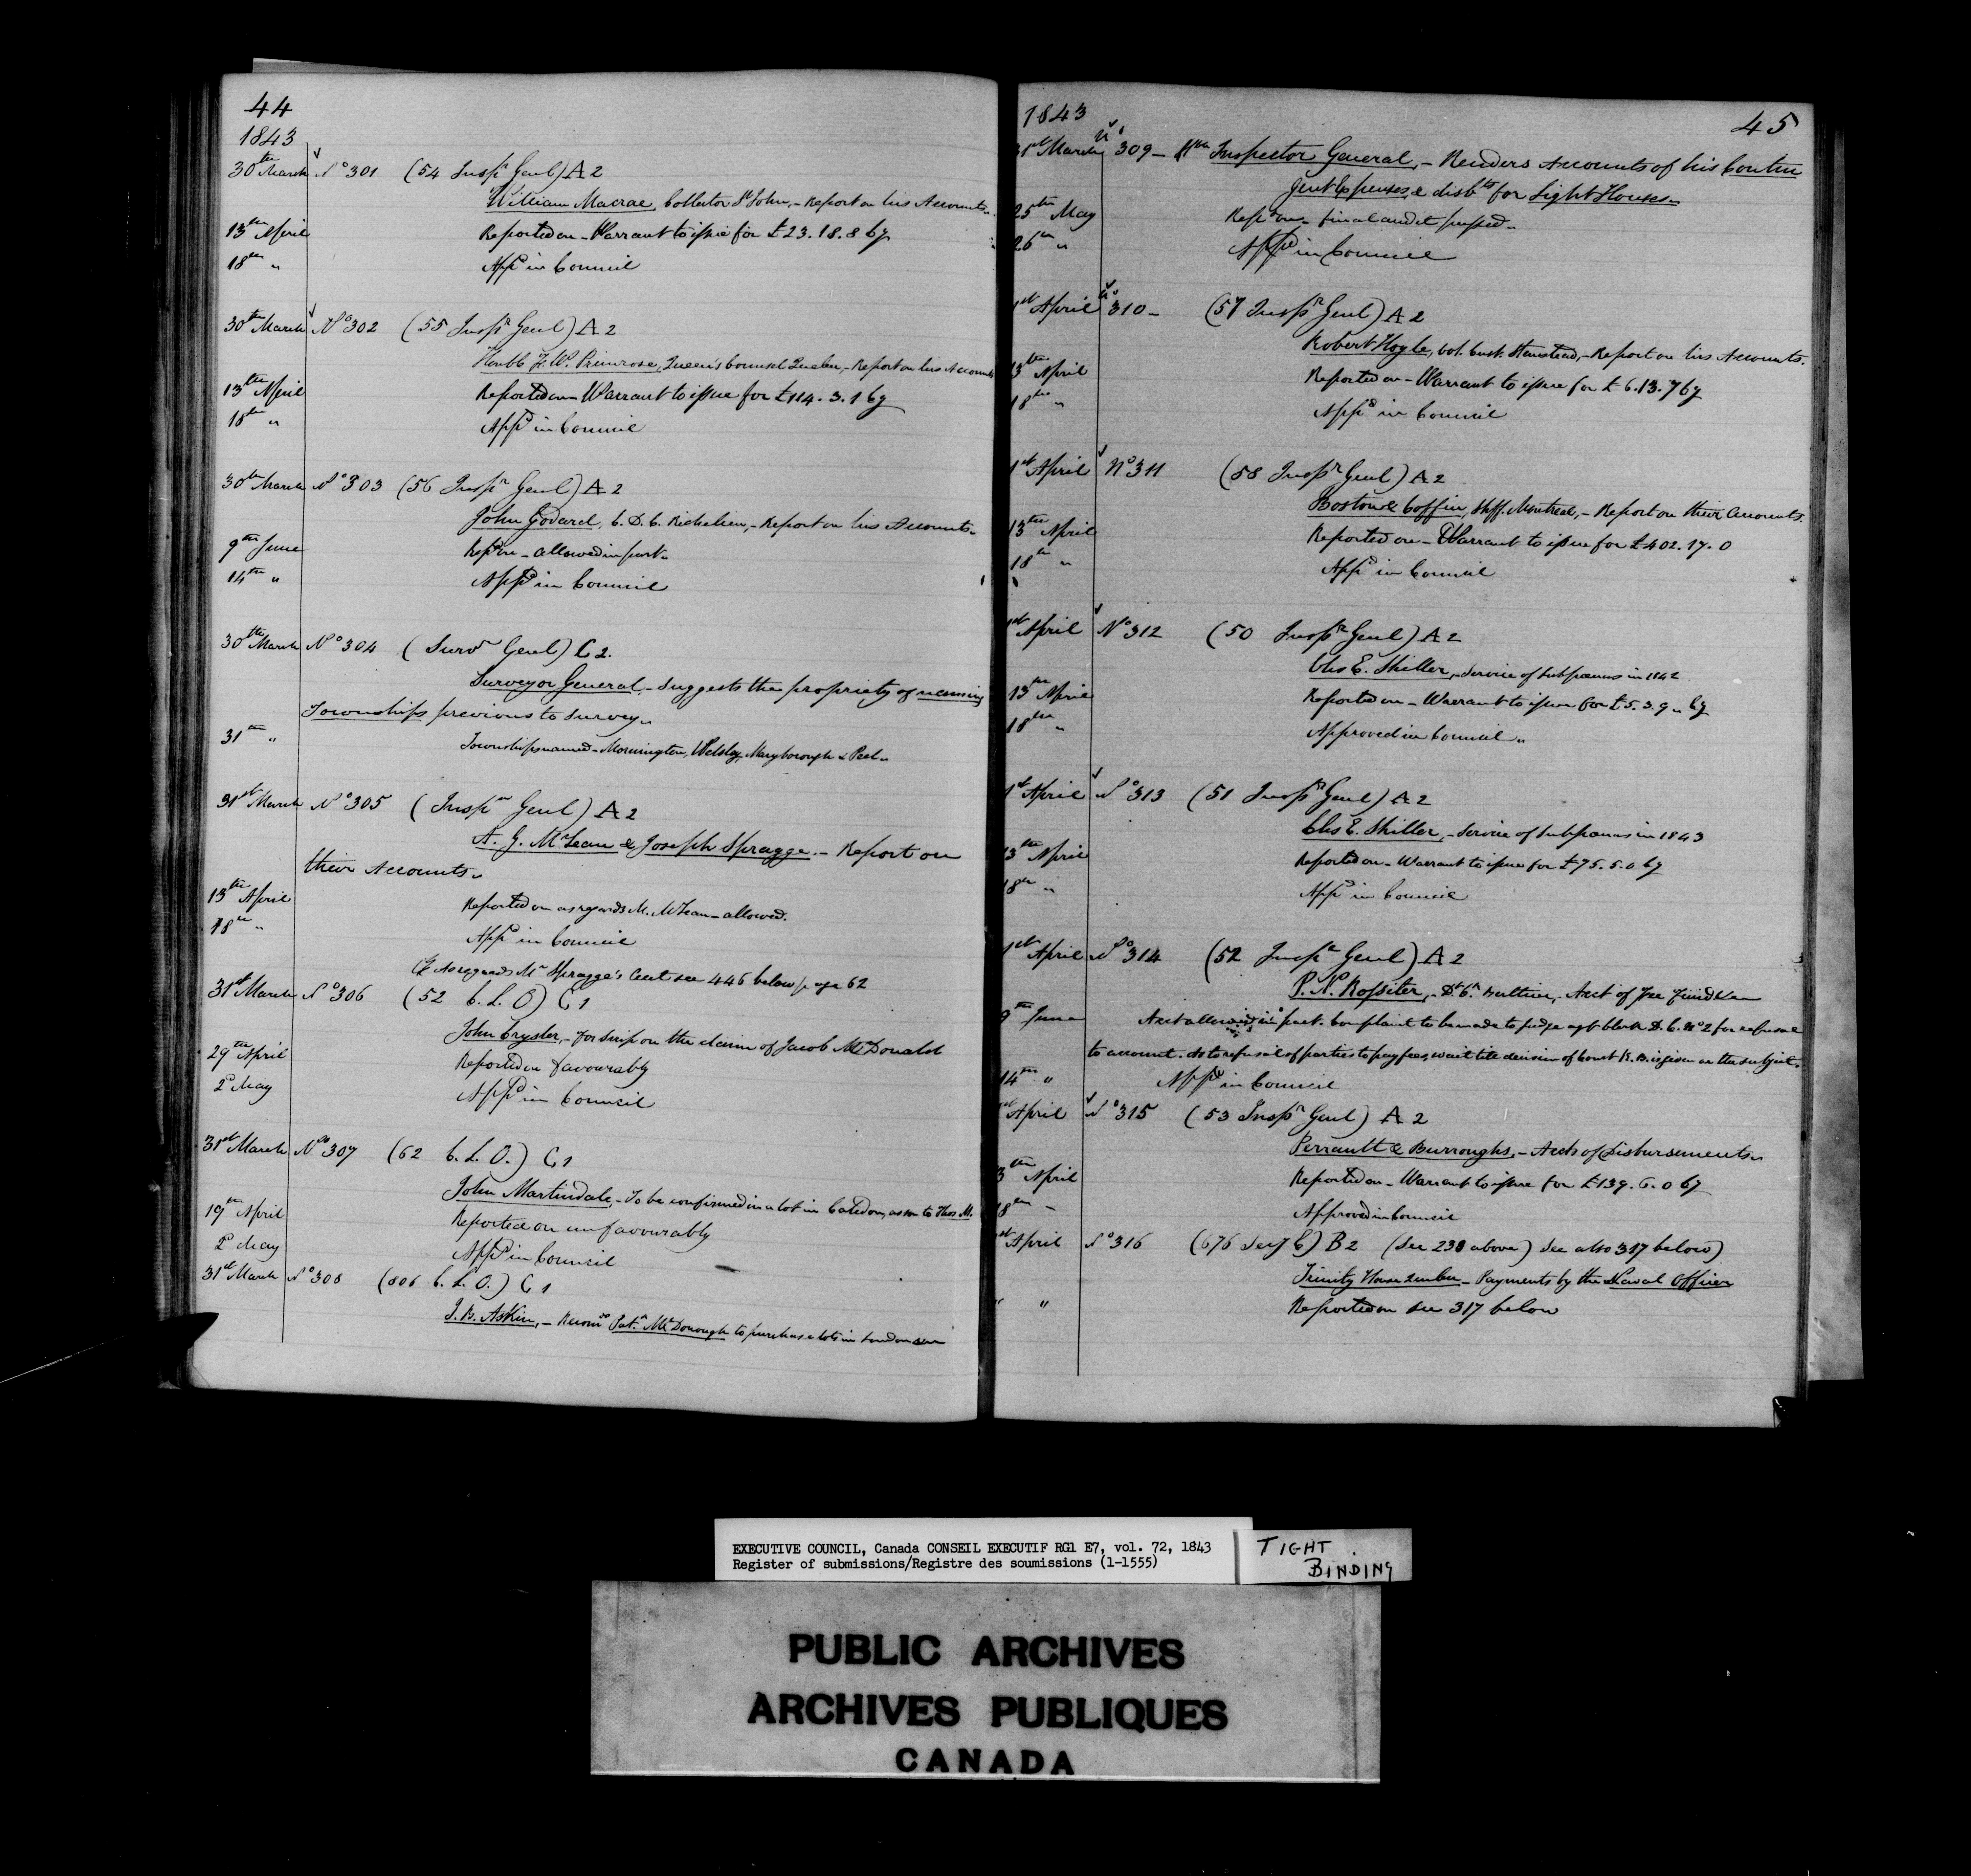 44
1843
30th March No 301 (54 Inspr Genl) A2
William Macrae, Collector St John, - Report on his Accounts.
13th April Reported on - Warrant to issue for £23.18.8 Cy
18th " Appd in Council
30th March No 302 (55 Inspr Genl) A2
Honble F. W. Primrose, Queen's Counsel Quebec, - Report on his Accounts
13th April Reported on - Warrant to issue for £114.3.1 Cy
18th " Appd in Council
30th March No 303 (56 Inspr Genl) A2
John Godard, C.D.C. Richelieu, - Report on his Accounts.
9th June Repd on - allowed in part.
14th " Appd in Council
30th March No 304 (Survr Genl) C2.
Surveyor General, - Suggests the propriety of naming
Townships previous to Survey.
31st " Townships named - Mornington, Welsley, Maryborough & Peel.
31st March No 305 (Inspr Genl) A2
A. J. McLean & Joseph Spragge. - Report on
their Accounts.
13th April Reported on as regards M. McLean - allowed.
18th " Appd in Council
As regards Mr Spragge's Acct see 446 below page 62
31st March No 306 (52 C.L.O) C1
John Crysler, - for Scrip on the claim of Jacob McDonald
29th April Reported on favourably
2d May Appd in Council
31st March No 307 (62 C.L.O.) C1
John Martindale, - To be confirmed in a lot in Caledon, as son to Thos M.
19th April Reported on unfavourably
2d May Appd in Council
31st March No 308 (606 C.L.O.) C1
J. B. Askin, - Recomds Pat. McDonough to purchase lots in London
1843
45
31st March No 309 - Inspector General, - Renders Accounts of his Contin
gent Expenses & disbts for Light Houses.
25th May Repd on - final audit passed.
26th " Appd in Council
1st April No 310 - (57 Inspr Genl) A2
Robert Hoyle, Col. Cust. Stanstead, - Report on his Accounts.
13th April Reported on - Warrant to issue for £6.13.7 Cy
18th " Appd in Council
1st April No 311 (58 Inspr Genl) A2
Boston & Coffin, Shff. Montreal, - Report on their Accounts.
13th April Reported on - Warrant to issue for £402.17.0
18th " Appd in Council
1st April No 312 (50 Inspr Genl) A2
Chs E. Shiller, - Service of Subpœnas in 1842
13th April Reported on - Warrant to issue for £5.3.9 Cy
18th " Approved in Council.
1st April No 313 (51 Inspr Genl) A2
Chs E. Shiller, - Service of Subpœnas in 1843
13th April Reported on - Warrant to issue for £75.5.0 Cy
18th " Appd in Council
1st April No 314 (52 Inspr Genl) A2
P. N. Rossiter, - Berthier, - Acct of Fee Fund
9th June Acct allowed in part. Complaint to be made to judge agt Clerk D.C. No 2 for refusal
to account. As to refusal of parties to pay fees, wait till decision of Court K.B. is given on the subject.
14th " Appd in Council
1st April No 315 (53 Inspr Genl) A2
Perrault & Burroughs, - Accts of Disbursements.
13th April Reported on - Warrant to issue for £139.6.0 Cy
18th " Approved in Council
1st April No 316 (676 Secy C) B2 (See 230 above) See also 317 below)
Trinity House Quebec - Payments by the Naval Officer
" " Reported on see 317 below
EXECUTIVE COUNCIL, Canada CONSEIL EXECUTIF RG1 E7, vol. 72, 1843
Register of submissions/Registre des soumissions (1-1555)
TIGHT
BINDING
PUBLIC ARCHIVES
ARCHIVES PUBLIQUES
CANADA